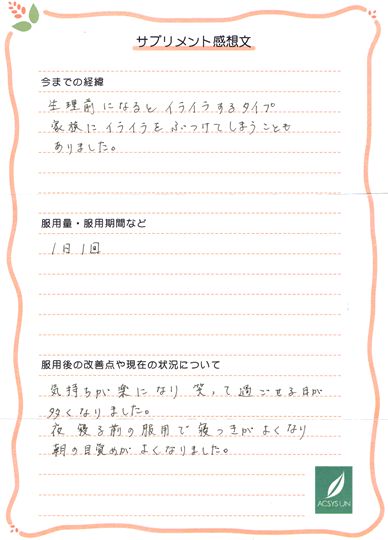 サプリメント感想文
今までの経緯
生理前になるとイライラするタイプ
家族にイライラをぶつけてしまうことも
ありました。
服用量・服用期間など
1日1回
服用後の改善点や現在の状況について
気持ちが楽になり 笑って過ごせる日が
多くなりました。
夜寝る前の服用で寝つきがよくなり
朝の目覚めがよくなりました。
ACSYS UN